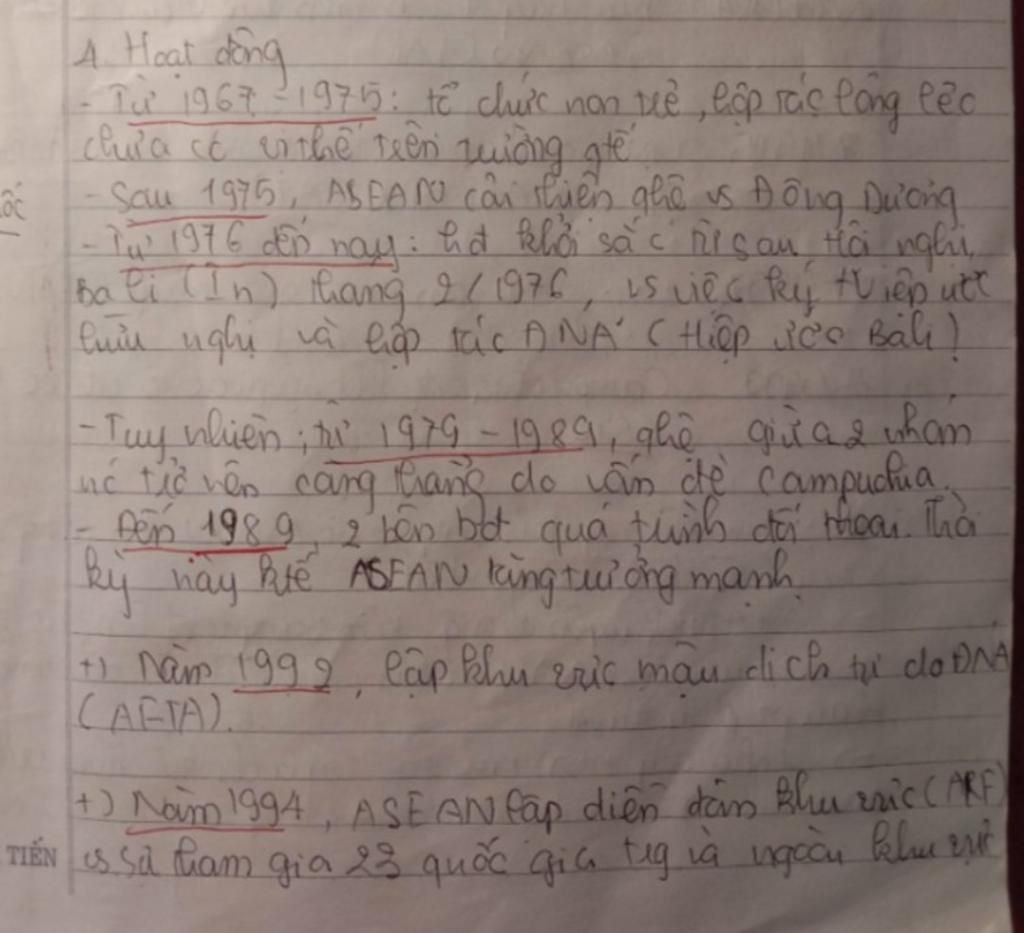 4. Hoạt động
- Từ 1967 - 1975: tổ chức non trẻ, hợp tác lỏng lẻo
chưa có vị thế trên trường qtế
ốc
- Sau 1975, ASEAN cải thiện qhệ vs Đông Dương
- Từ 1976 đến nay: hđ khởi sắc từ sau Hội nghị
Bali (In) tháng 2/1976, vs việc ký Hiệp ước
hữu nghị và hợp tác ĐNÁ (Hiệp ước Bali)
- Tuy nhiên, từ 1979 - 1989, qhệ giữa 2 nhóm
nc trở nên căng thẳng do vấn đề Campuchia.
- Đến 1989, 2 bên bđ quá trình đối thoại. Thời
kỳ này ktế ASEAN tăng trưởng mạnh.
+) Năm 1992, lập khu vực mậu dịch tự do ĐNÁ
(AFTA).
+) Năm 1994, ASEAN lập diễn đàn khu vực (ARF)
vs sự tham gia 23 quốc gia trg và ngoài khu vực
TIẾN